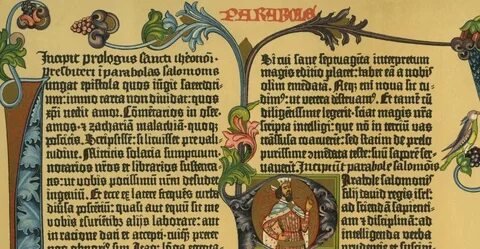 PARABOLE
Incipit prologus sancti iheronimi
presbiteri i parabolas salomonis
Iungat epistola quos iūgit sacerdoti-
um: immo carta non dividat: quos
xp̄i nectit amor. Cōmētarios in osee.
amos. et zachariā malachiā· quoq;
poscitis. Scripsissē: si licuisset pre va-
litudine. Mittitis solacia sumptuum.
notarios nr̄os et librarios sustenta-
tis: ut vobis potissimū nr̄m desudet
ingeniū. Et ecce ex latere freq̄ns turba
diūsa poscētiū: quasi aut equū sit me
vobis esuriētib; aliis laborare: aut
in ratione dati et accepti. cuiq̄; preter
vos obnoxi9 sim. Itaq; lōga
Si cui sane septuaginta interpretum
magis editio placet: habet eā a nobis
olim emēdatā. Neq; eni nova sic cu-
dim9: ut vetera destruam9. Et tamē cū
diligētissime legerit: sciat magis nr̄a
scripta intelligi: que nō in terciū vas
trāsfusa coacuerīt: sed statim de prelo
purissime 9mēdata teste: suū saporē ser-
vaverīt. Incipiunt parabole salomōis
Parabole salomonis
filii david regis isr̄l:
ad sciendā sapienti-
am et disciplinā: ad
intelligenda verba
prudentie et suscipi-